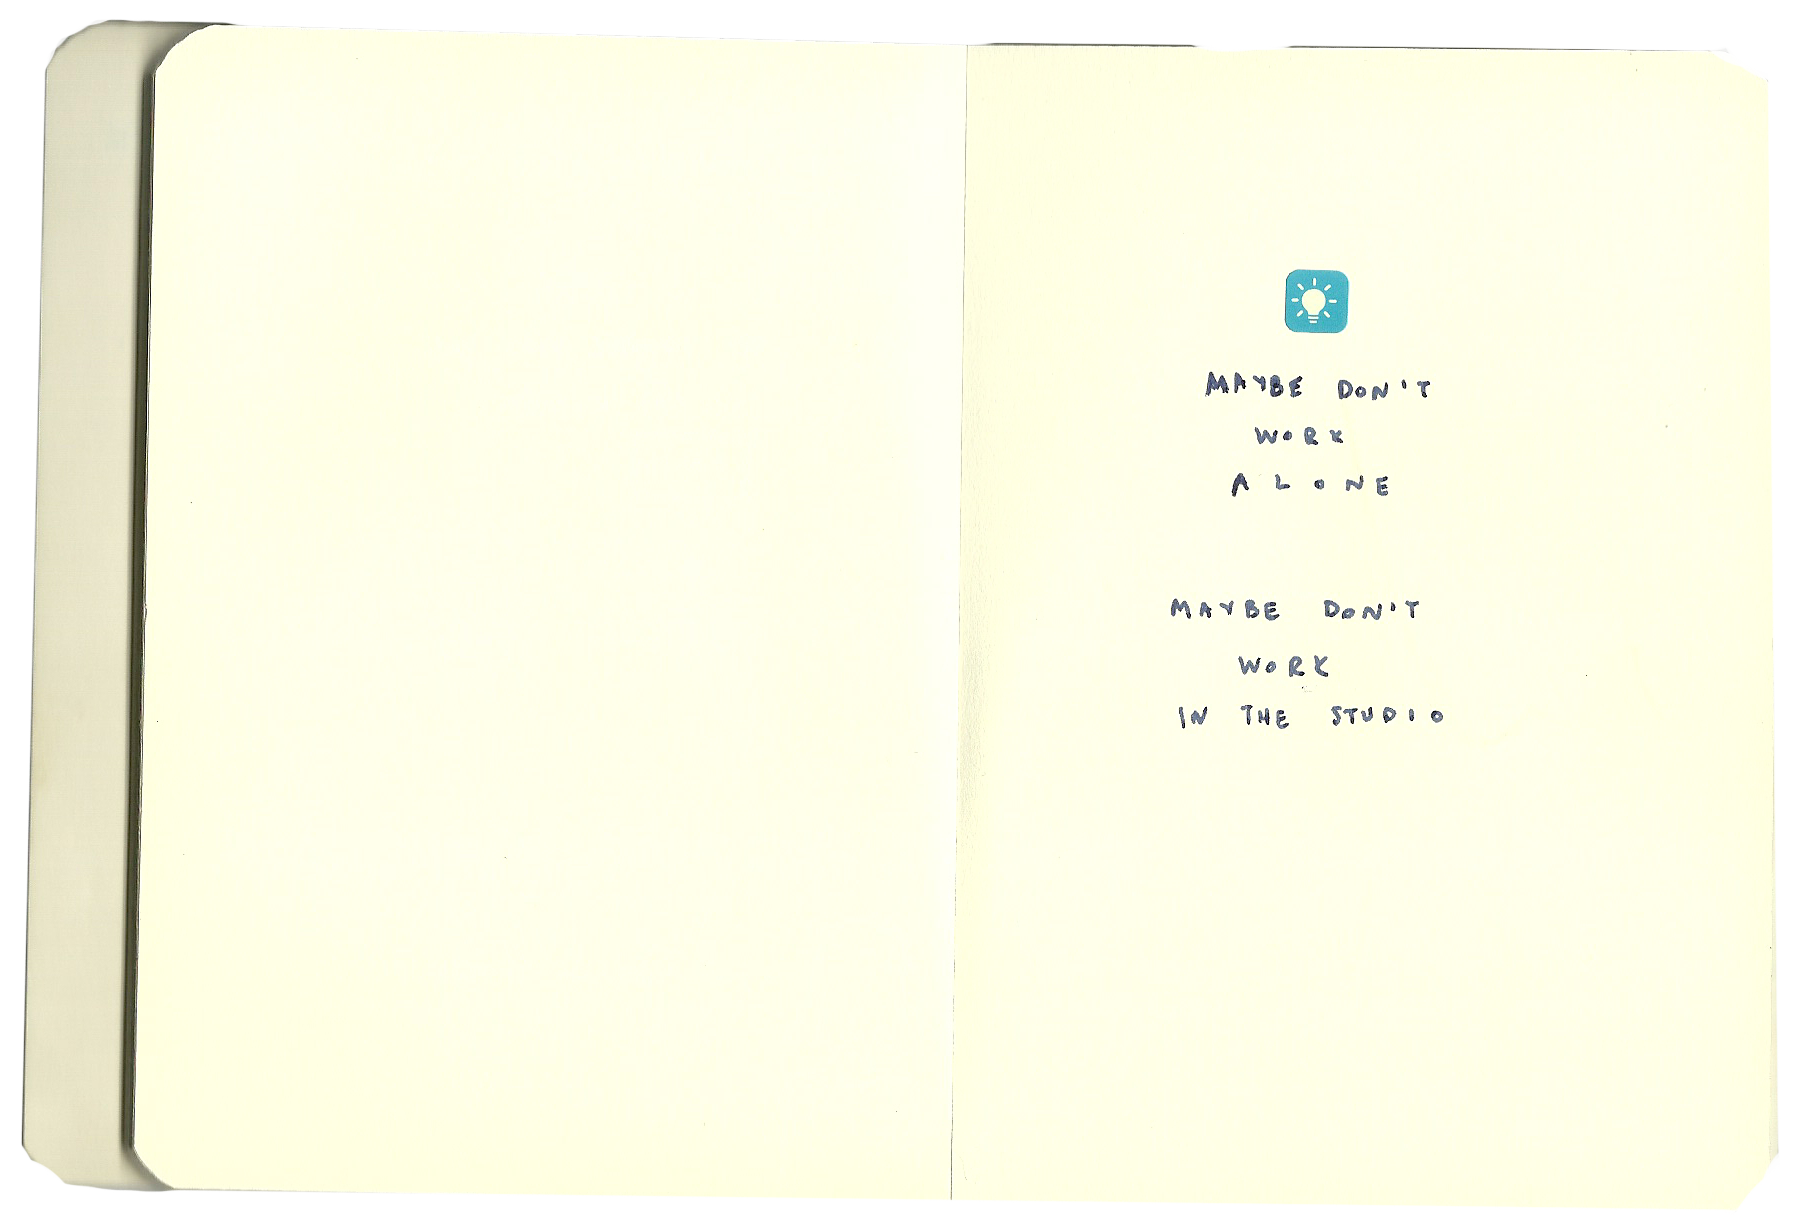 MAYBE DON'T
WORK
ALONE
MAYBE DON'T
WORK
IN THE STUDIO